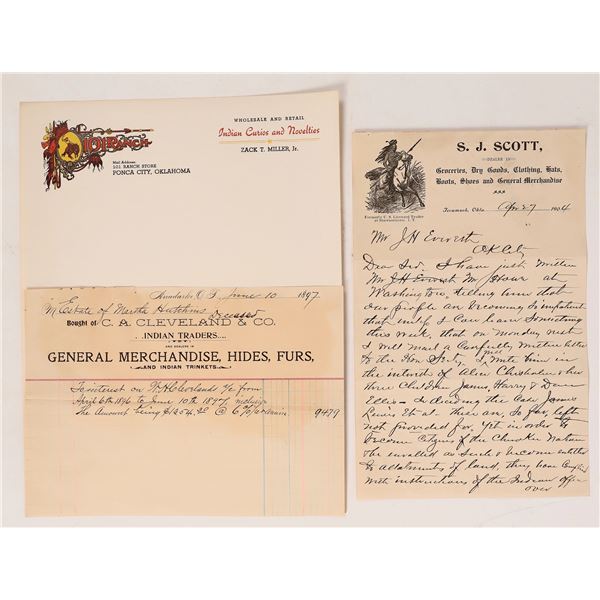 101 RANCH
Mail Address:
101 RANCH STORE
PONCA CITY, OKLAHOMA
WHOLESALE AND RETAIL
Indian Curios and Novelties
ZACK T. MILLER, Jr.
Anadarko O T June 10 1897
M Estate of Martha Hutchins Deceased
Bought of C. A. CLEVELAND & CO.
INDIAN TRADERS
AND DEALERS IN
GENERAL MERCHANDISE, HIDES, FURS,
AND INDIAN TRINKETS.
To interest on
April 6th 1896 to June 10th 1897
The Amount being @ 6 %
9479
S. J. SCOTT,
DEALER IN
Groceries, Dry Goods, Clothing, Hats,
Boots, Shoes and General Merchandise
Formerly
Okla. Apr 27 1904
Mr J H Everest
O K City
Dear Sir, I have just written
Mr at
Washington, telling him that
our people are becoming so impatient
that unless I can learn something
this week, that on Monday next
I will mail a carefully written letter
to the Hon Secty, I write him in
the interest of Alice Chisholm & her
three children James, Harry & Dave
Ellis & including the case James
Lewis Et al these are, so far, left
not provided for, yet in order to
become citizens of the Nation
& be enrolled as such & become entitled
to allotments of land, they have complied
with instructions of the Indian office
over